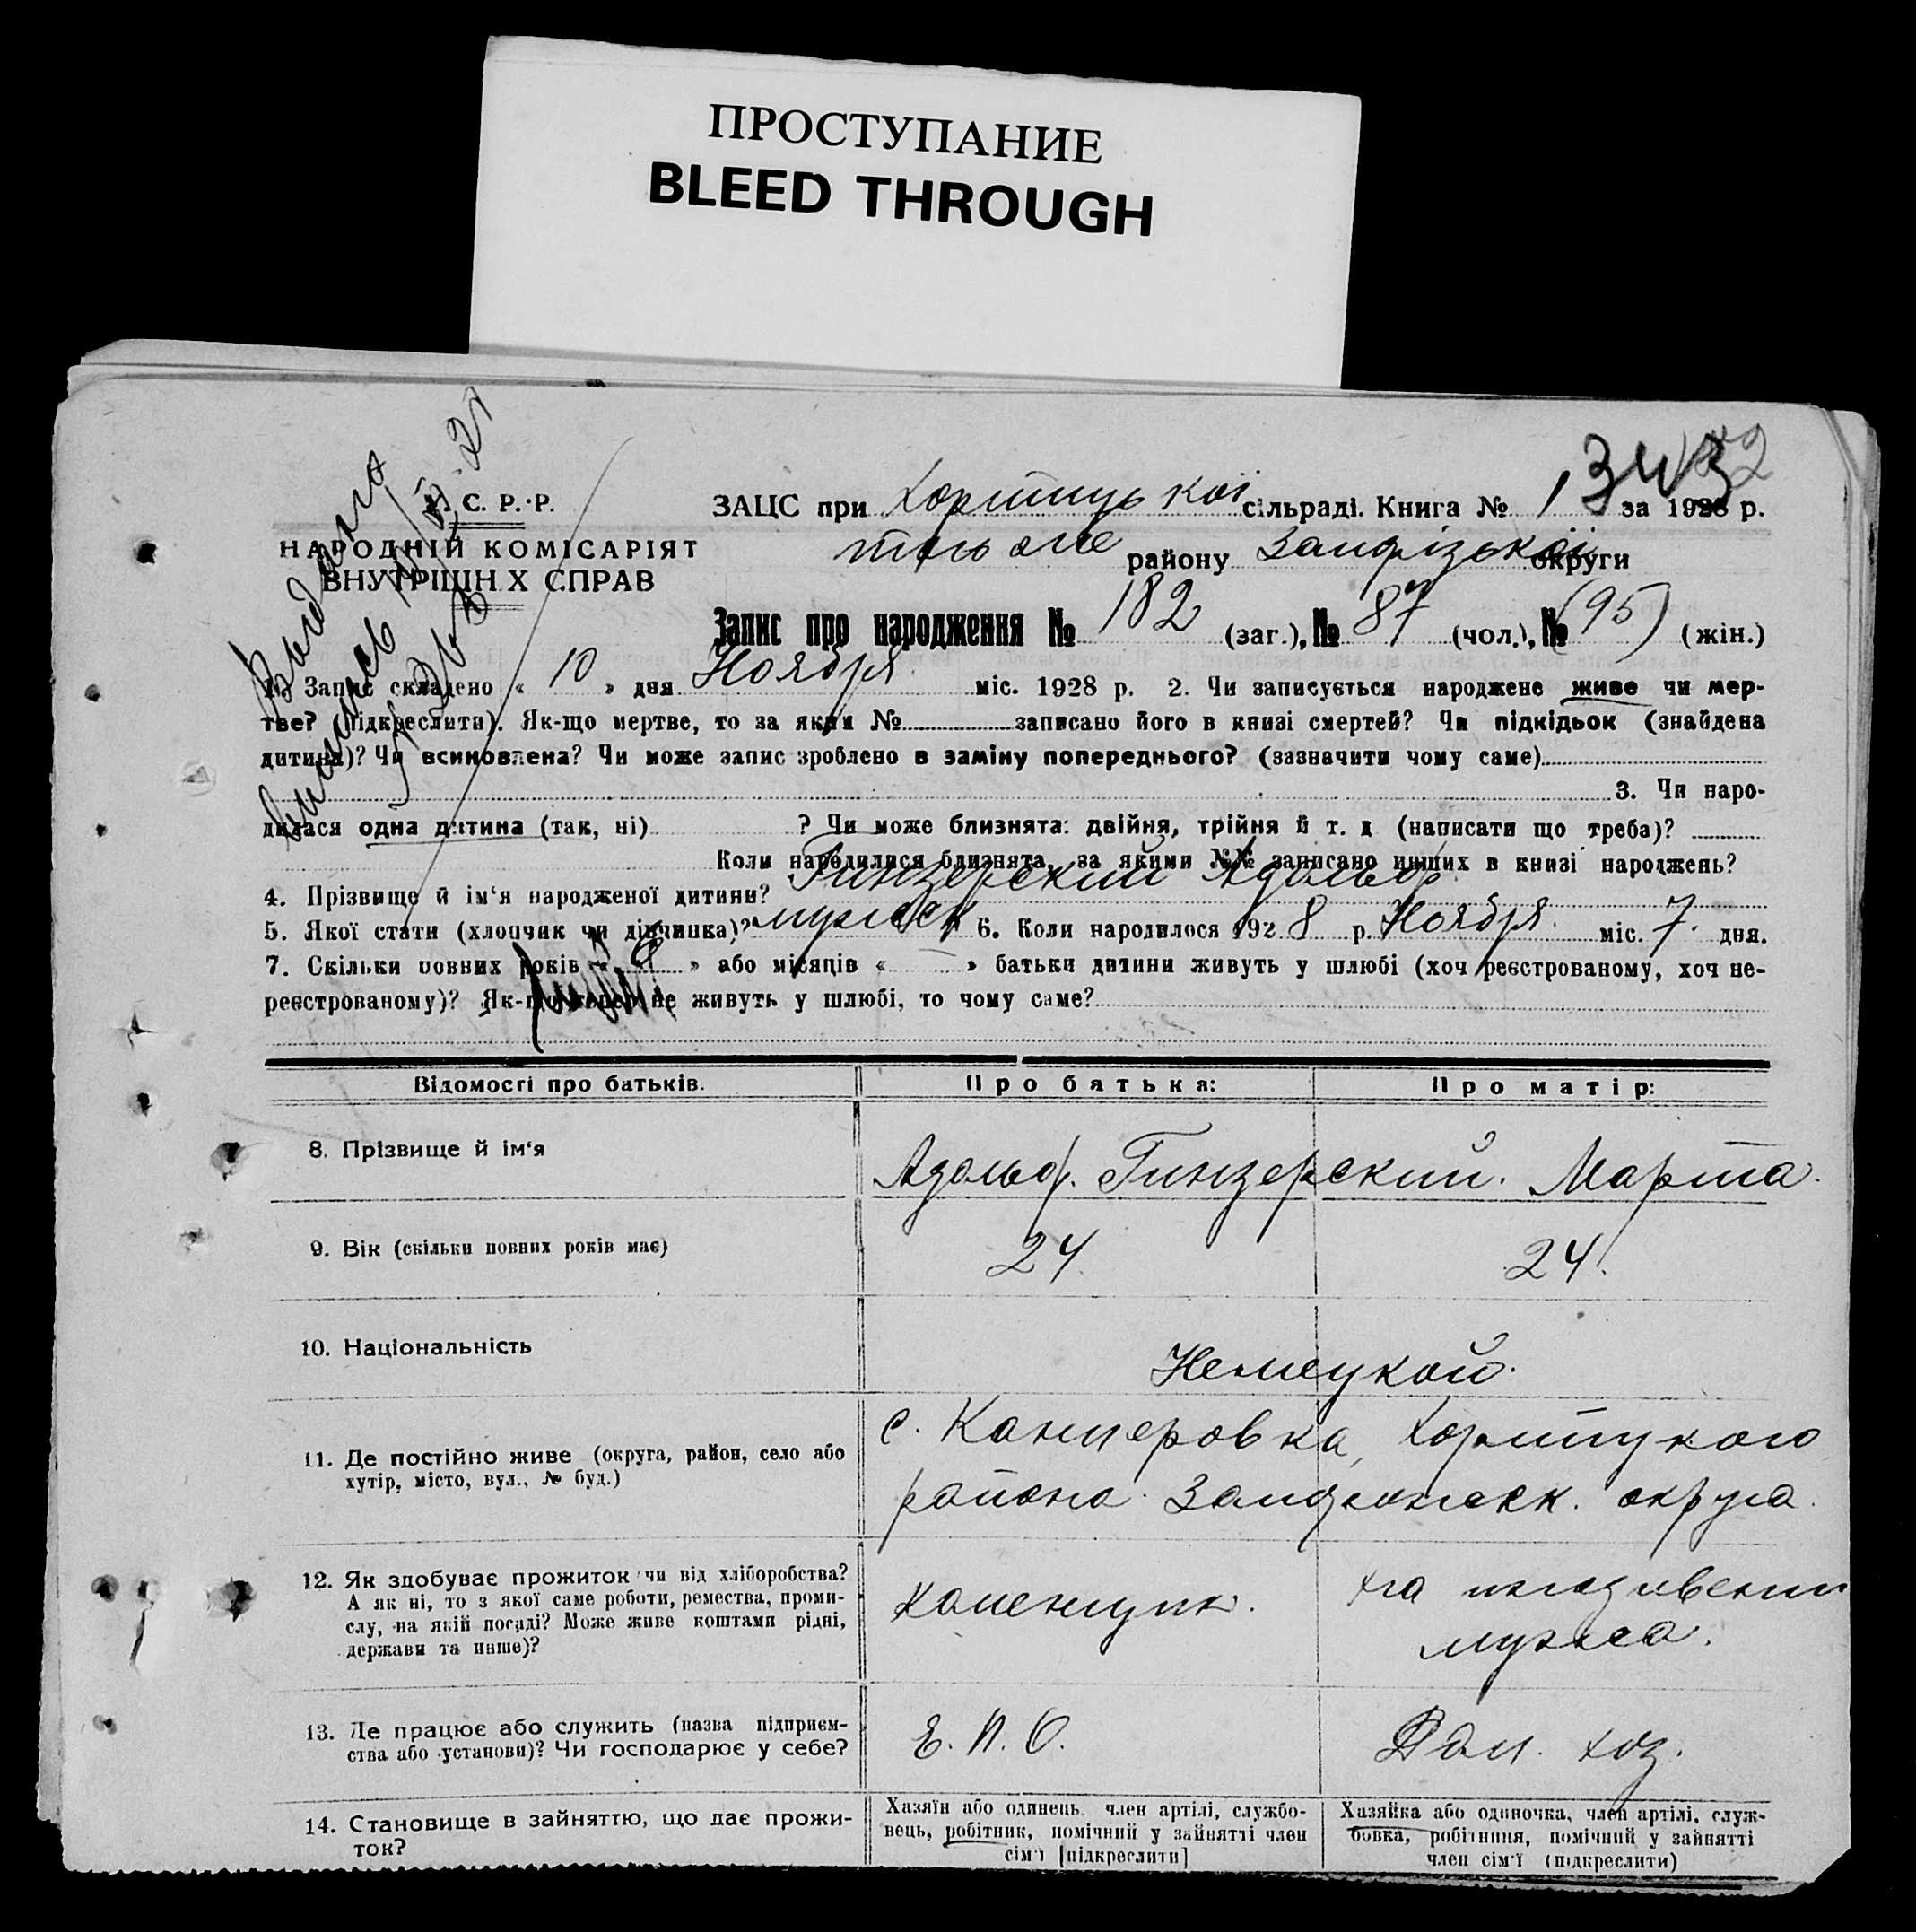 ПРОСТУПАНИЕ
BLEED THROUGH
У. С. Р. Р.
НАРОДНІЙ КОМІСАРІЯТ
ВНУТРІШН Х СПРАВ
Выдано
ЗАЦС при Хортицької сільраді. Книга № 1 за 1928 р.
того же району Запорізької округи
Запис про народження № 182 (заг.), № 87 (чол.), № (95) (жін.)
1. Запис складено « 10 » дня Ноября міс. 1928 р. 2. Чи записується народжене живе чи мер-
тве? (підкреслити). Як-що мертве, то за яким № записано його в книзі смертей? Чи підкідьок (знайдена
дитина)? Чи всиновлена? Чи може запис зроблено в заміну попереднього? (зазначити чому саме)
3. Чи наро-
дилася одна дитина (так, ні) ? Чи може близнята: двійня, трійня й т. д (написати що треба)?
Коли народилися близнята, за якими №№ записано инших в книзі народжень?
4. Прізвище й ім‘я народженої дитини? Гинзерский Адольф
5. Якої стати (хлопчик чи дівчинка)? мужск 6. Коли народилося 1928 р. Ноября міс. 7. дня.
7. Скільки повних років « » або місяців « » батьки дитини живуть у шлюбі (хоч реєстрованому, хоч не-
реєстрованому)? Як-що тепер не живуть у шлюбі, то чому саме?
Відомості про батьків.
Про батька:
Про матір:
8. Прізвище й ім‘я
Адольф. Гинзерский. Марта.
9. Вік (скільки повних років має)
24.
24.
10. Національність
Немецкой.
11. Де постійно живе (округа, район, село або
хутір, місто, вул., № буд.)
с. Канцеровка, Хортицкого
района. Запорожск. округа.
12. Як здобуває прожиток чи від хліборобства?
А як ні, то з якої саме роботи, ремества, проми-
слу, на якій посаді? Може живе коштами рідні,
держави та инше)?
Каменщик.
На иждивении
мужа.
13. Де працює або служить (назва підприєм-
ства або установи)? Чи господарює у себе?
Е. П. О.
Дом. хоз.
14. Становище в зайняттю, що дає прожи-
ток?
Хазяїн або одинець, член артілі, службо-
вець, робітник, помічний у зайнятті член
сім‘ї [підкреслити]
Хазяйка або одиночка, член артілі, служ-
бовка, робітниця, помічний у зайнятті
член сім‘ї (підкреслити)